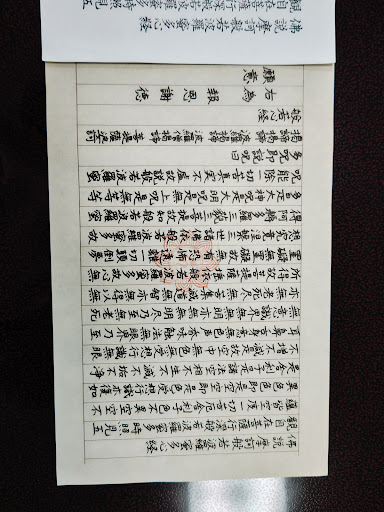 佛説摩訶般若波羅蜜多心経
観自在菩薩行深般若波羅蜜多時照見五
蘊皆空度一切苦厄舎利子色不異空空不
異色色即是空空即是色受想行識亦復如
是舎利子是諸法空相不生不滅不垢不浄
不増不減是故空中無色無受想行識無眼
耳鼻舌身意無色声香味触法無眼界乃至
無意識界無無明亦無無明尽乃至無老死
亦無老死尽無苦集滅道無智亦無得以無
所得故菩提薩埵依般若波羅蜜多故心無
罣礙無罣礙故無有恐怖遠離一切顛倒夢
想究竟涅槃三世諸佛依般若波羅蜜多故
得阿耨多羅三藐三菩提故知般若波羅蜜
多是大神呪是大明呪是無上呪是無等等
呪能除一切苦真実不虚故説般若波羅蜜
多呪即説呪曰
羯諦羯諦波羅羯諦波羅僧羯諦菩提薩婆訶
般若心経
右為 報恩謝徳
願意
佛説摩訶般若波羅蜜多心経
観自在菩薩行深般若波羅蜜多時照見五